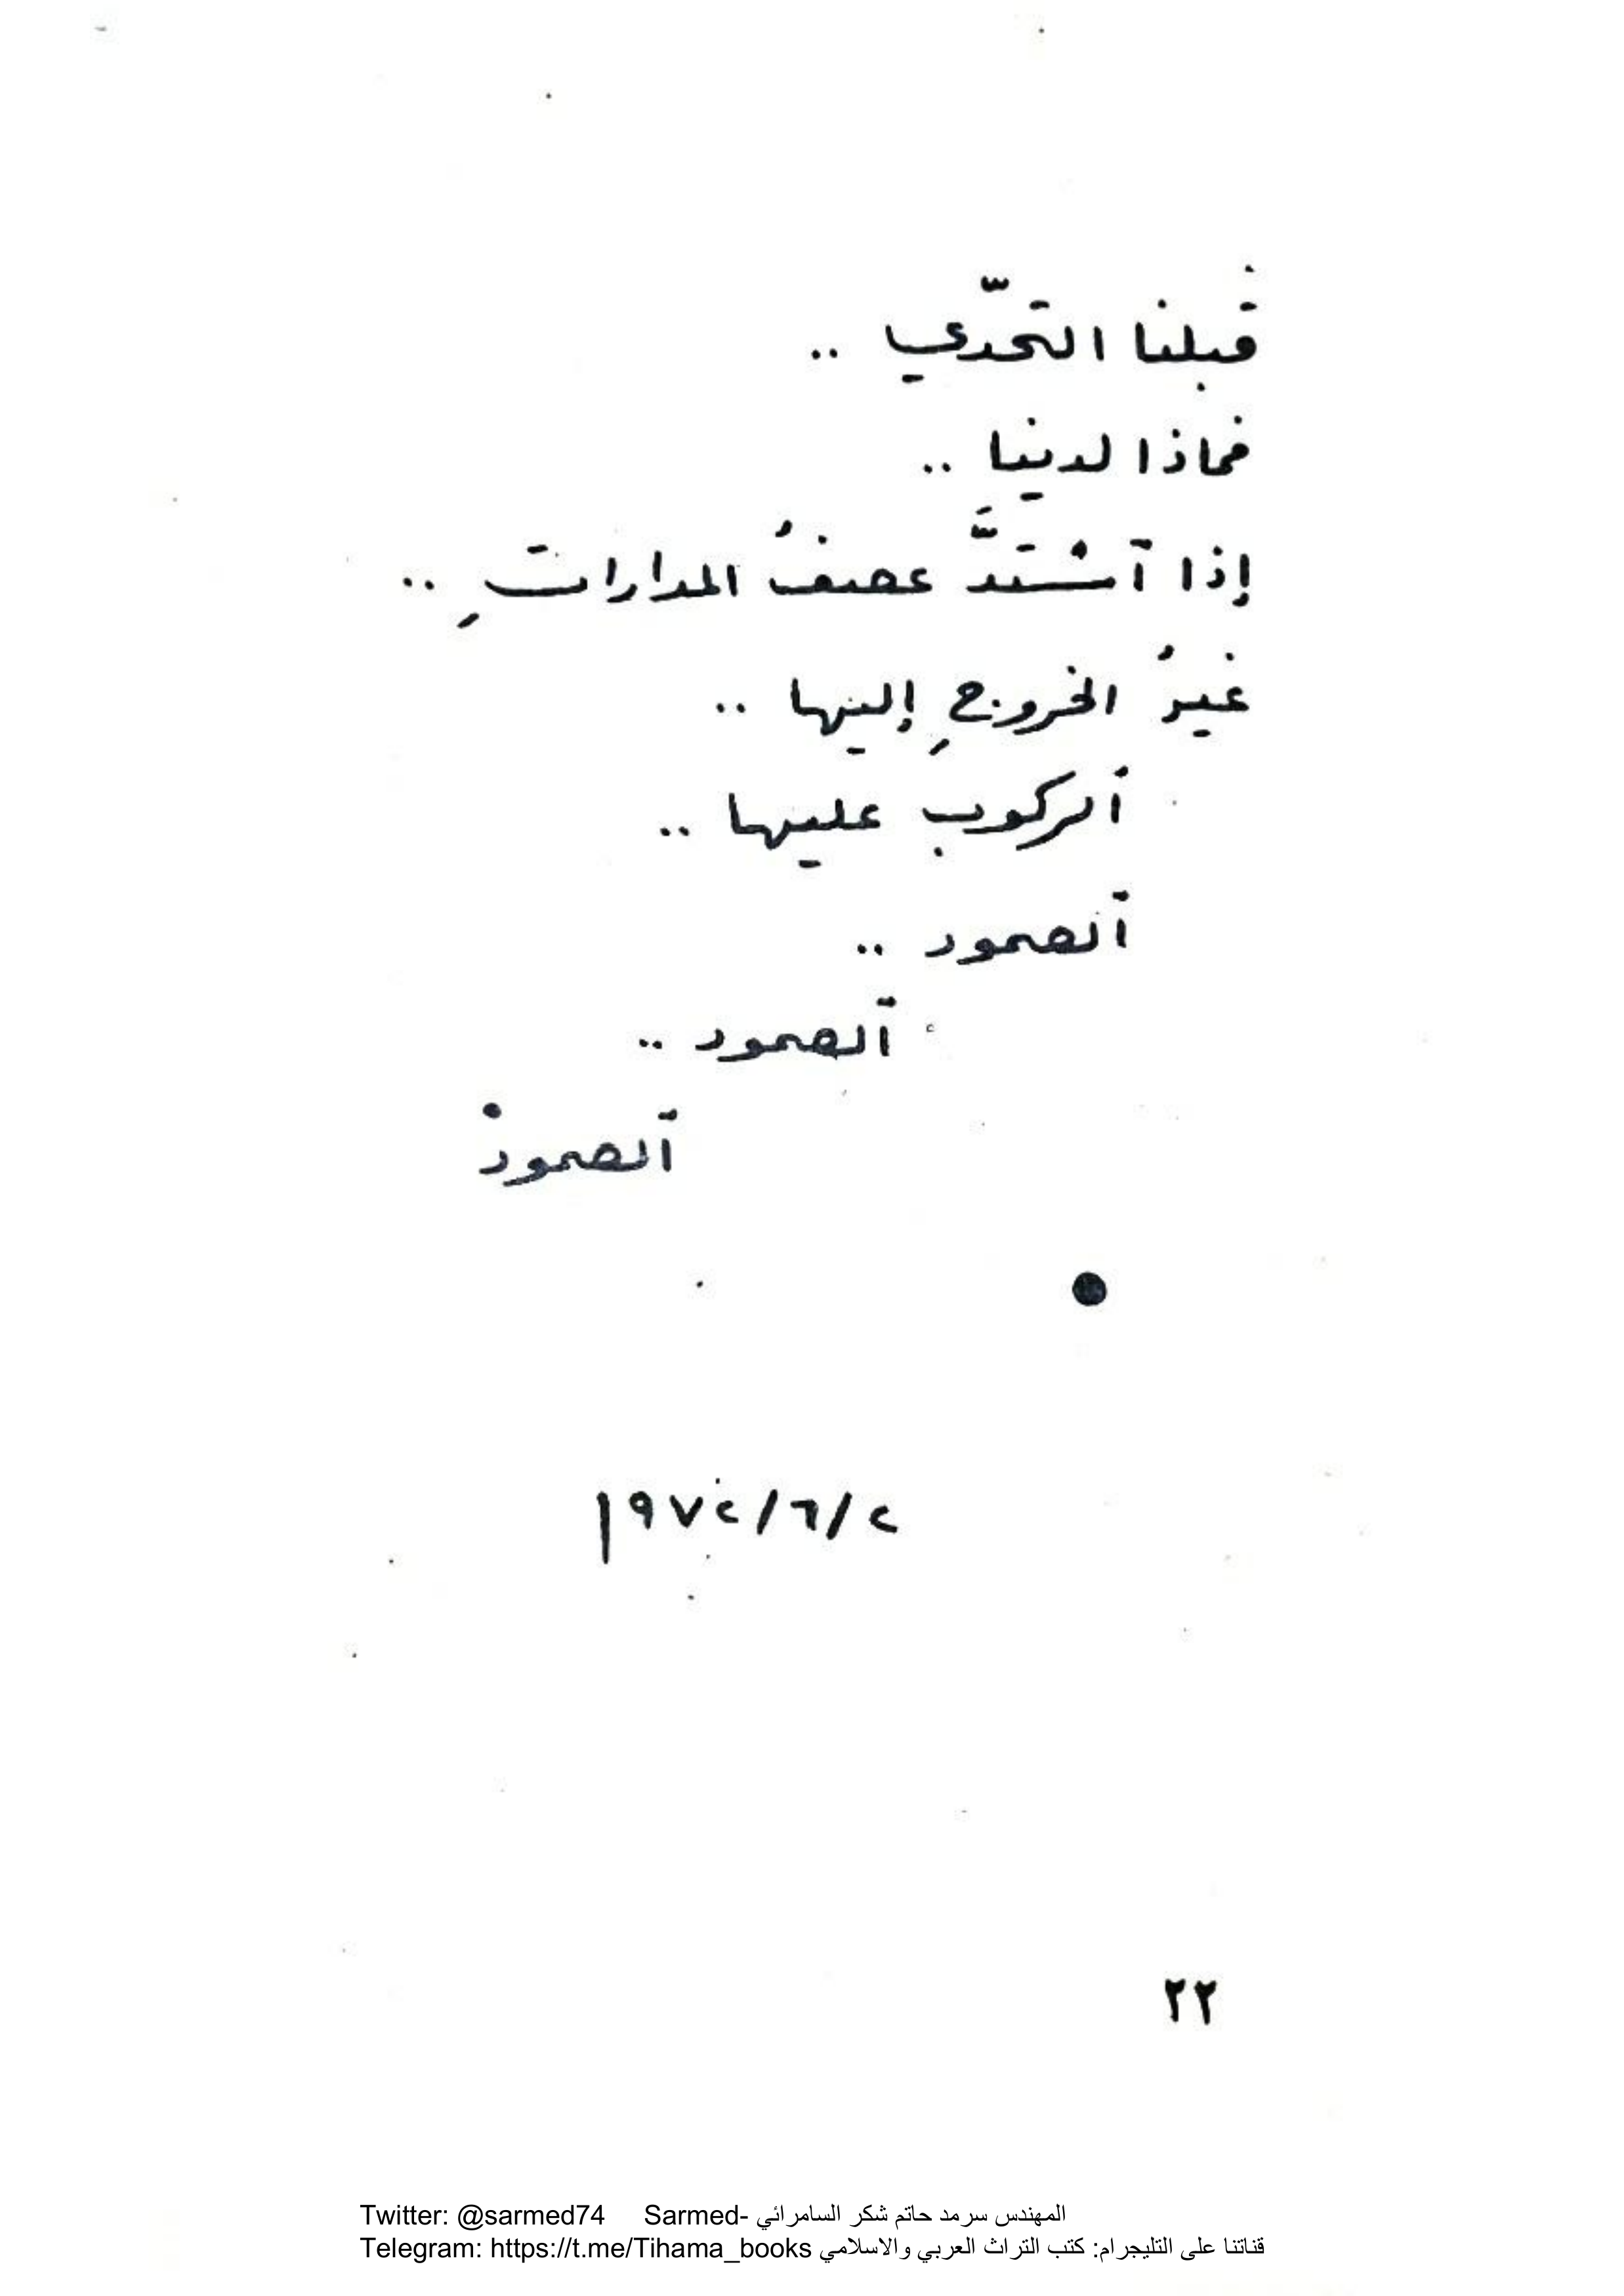 قبلنا التحدّي ..
فماذا لدينا ..
إذا ٱشْتدَّ عصفُ المداراتِ ..
غيرُ الخروجِ إليها ..
ٱلركوب عليها ..
ٱلصمود ..
ٱلصمود ..
ٱلصمودْ
●
١٩٧٢/٦/٢
٢٢
Twitter: @sarmed74 Sarmed- المهندس سرمد حاتم شكر السامرائي
Telegram: https://t.me/Tihama_books قناتنا على التليجرام: كتب التراث العربي والاسلامي